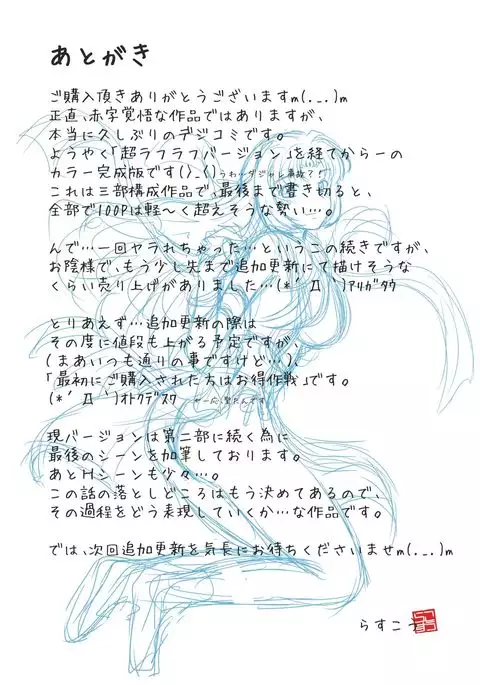 あとがき
ご購入頂きありがとうございますm(._.)m
正直、赤字覚悟な作品ではありますが、
本当に久しぶりのデジコミです。
ようやく「超ラフラフバージョン」を経てからーの
カラー完成版です(>_<)うわ…ダジャレ事故て!
これは三部構成作品で、最後まで書き切ると、
全部で100Pは軽〜く超えそうな勢い…。
んで…一回ヤラれちゃった…というこの続きですが、
お陰様で、もう少し先まで追加更新にて描けそうな
くらい売り上げがありました…(*´Д`)ｱﾘｶﾞﾀｳ
とりあえず…追加更新の際は
その度に値段も上がる予定ですが、
(まあいつも通りの事ですけど…)、
「最初にご購入された方はお得作戦」です。
(*´Д`)ｵﾄｸﾃﾞｽﾜ
現バージョンは第二部に続く為に
最後のシーンを加筆しております。
あとHシーンも少々…。
この話の落としどころはもう決めてあるので、
その過程をどう表現していくか…な作品です。
では、次回追加更新を気長にお待ちくださいませm(._.)m
らすこう